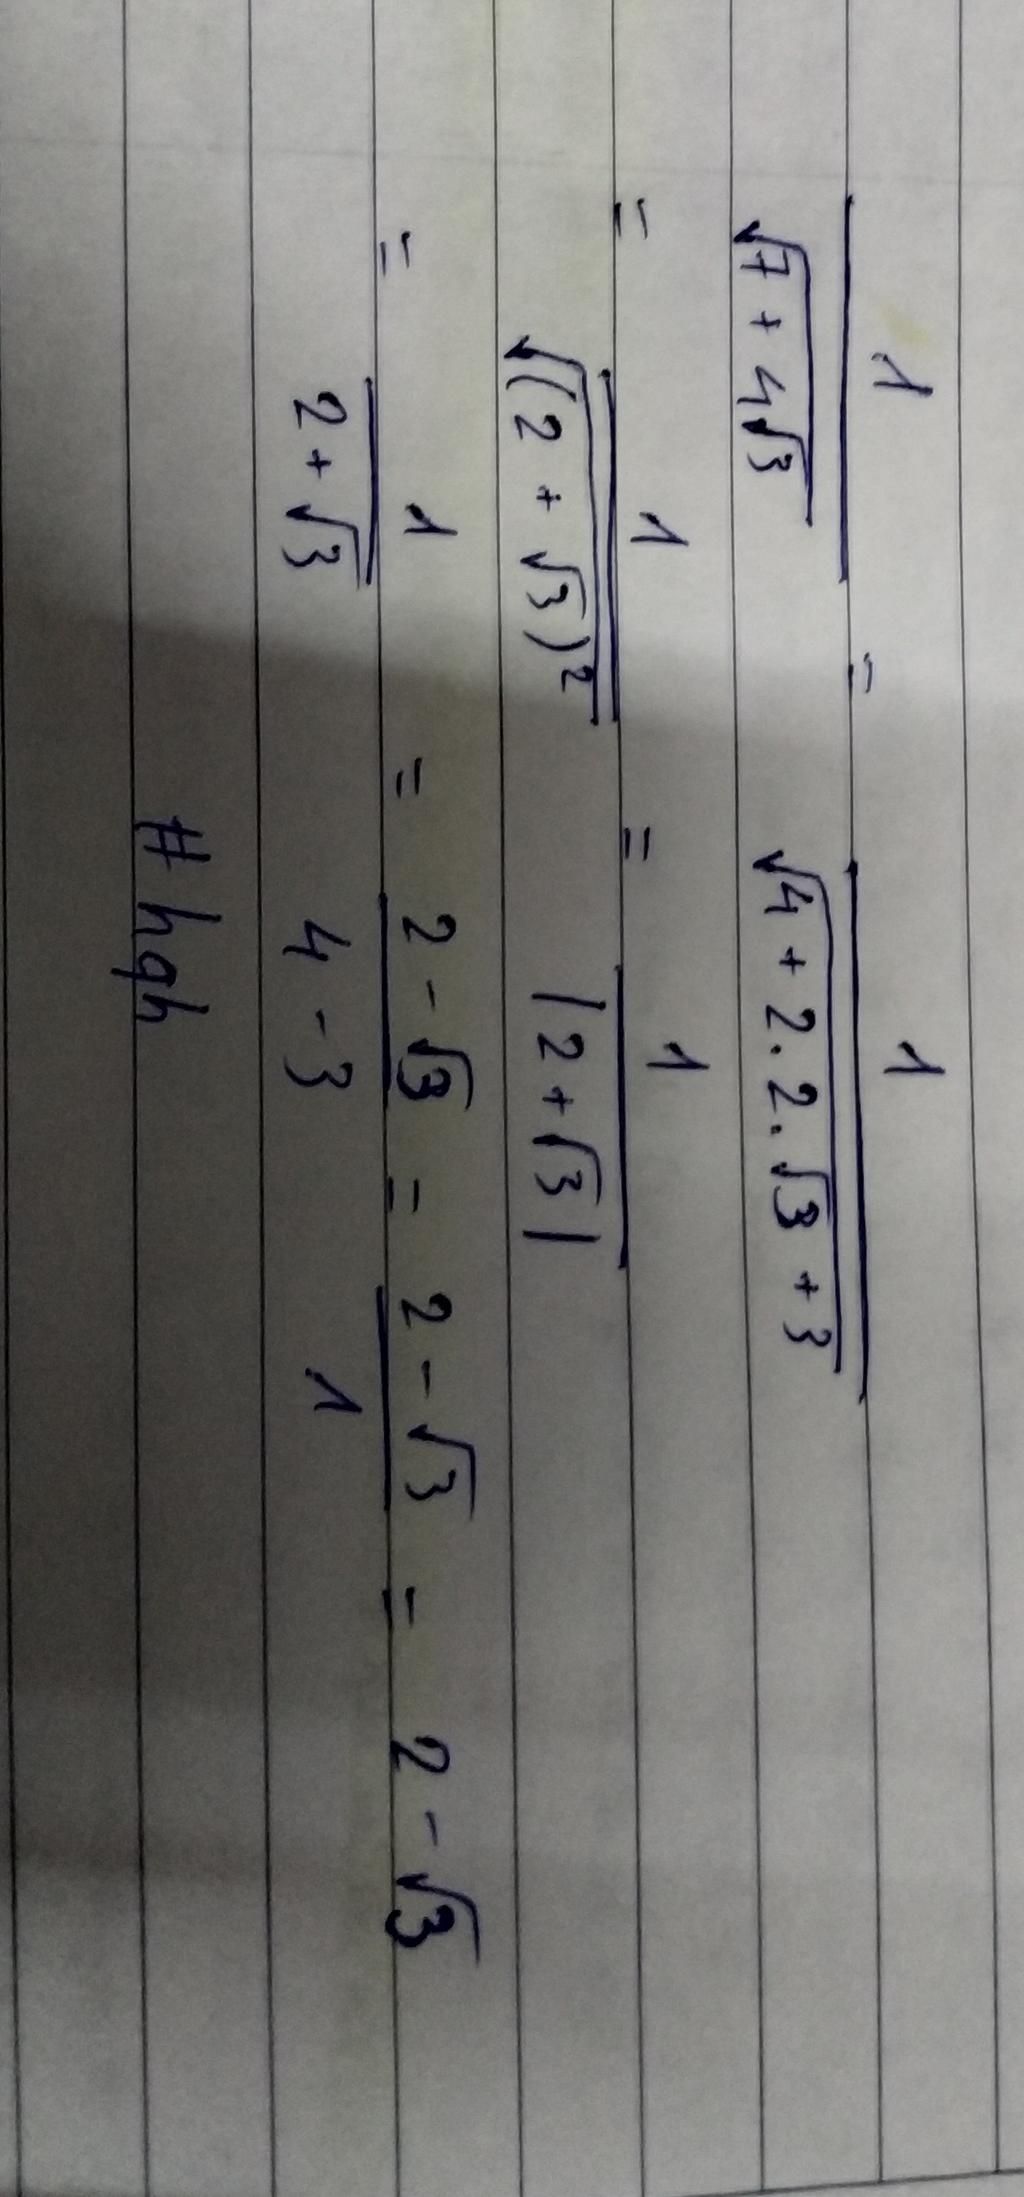 1/√(7 + 4√3) = 1/√(4 + 2.2.√3 + 3)
= 1/√((2 + √3)²) = 1/|2 + √3|
= 1/(2 + √3) = (2 - √3)/(4 - 3) = (2 - √3)/1 = 2 - √3
# hgh